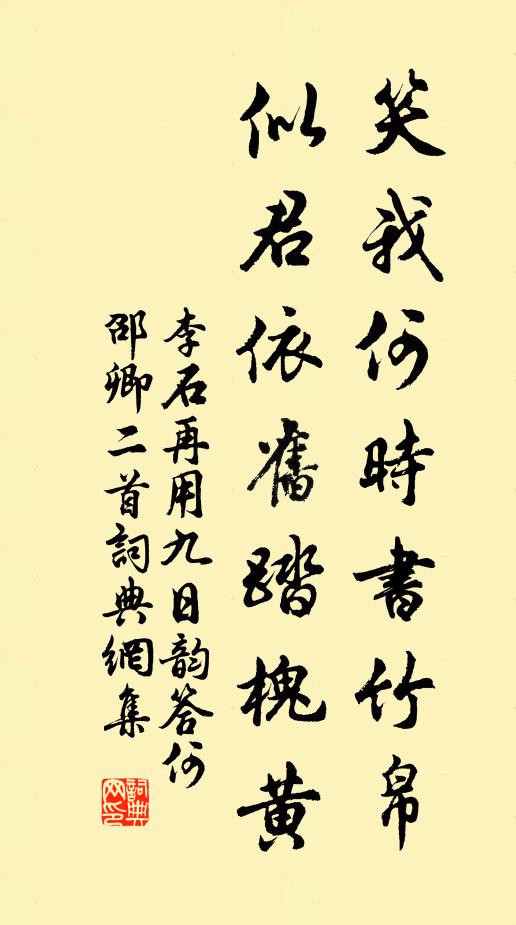 笑我何時書竹帛
似君依舊踏槐黃
李石再用九日韵答何
邵卿二首詞典網集
詞典网印